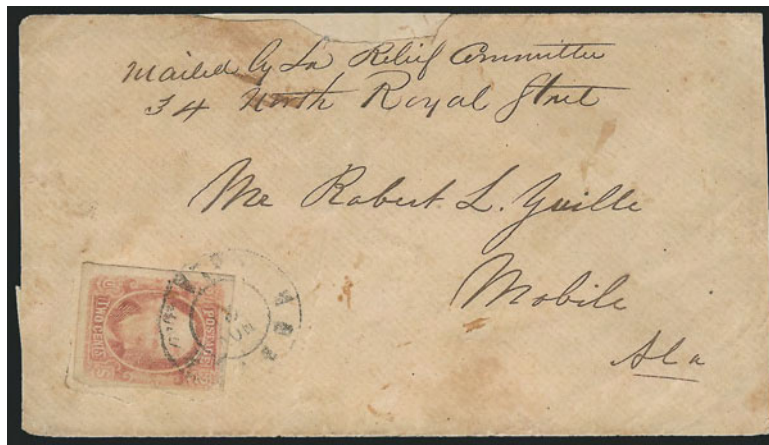 Mailed by La Relief Committee
34 North Royal Street
Mr Robert L. Yuille
Mobile
Ala
TWO CENTS
POSTAGE
NOV